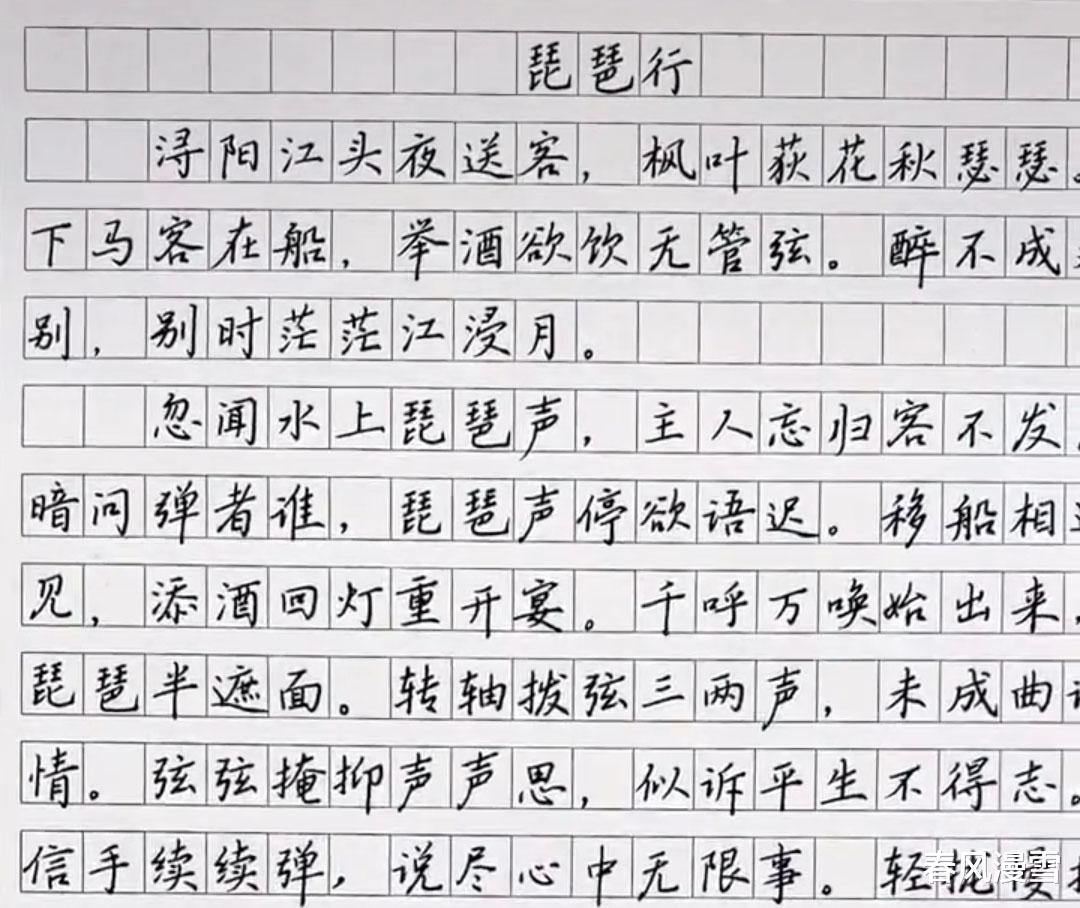 琵琶行
浔阳江头夜送客，枫叶荻花秋瑟瑟。
下马客在船，举酒欲饮无管弦。醉不成
别，别时茫茫江浸月。
忽闻水上琵琶声，主人忘归客不发
暗问弹者谁，琵琶声停欲语迟。移船相
见，添酒回灯重开宴。千呼万唤始出来，
琵琶半遮面。转轴拨弦三两声，未成曲
情。弦弦掩抑声声思，似诉平生不得志。
信手续续弹，说尽心中无限事。轻拢慢
春风漫雪